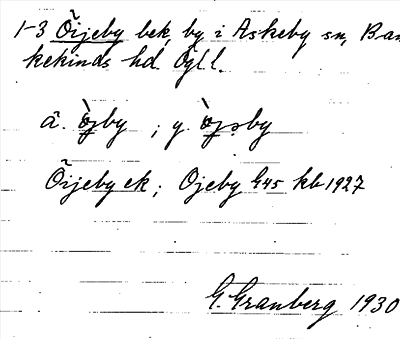 1-3 Öijeby bek, by i Askeby sn, Ban
kekinds hd. Ögl.
â. by ; y.
Öijeby ek; Ojeby G45 kb 1927
G. Granberg 1930